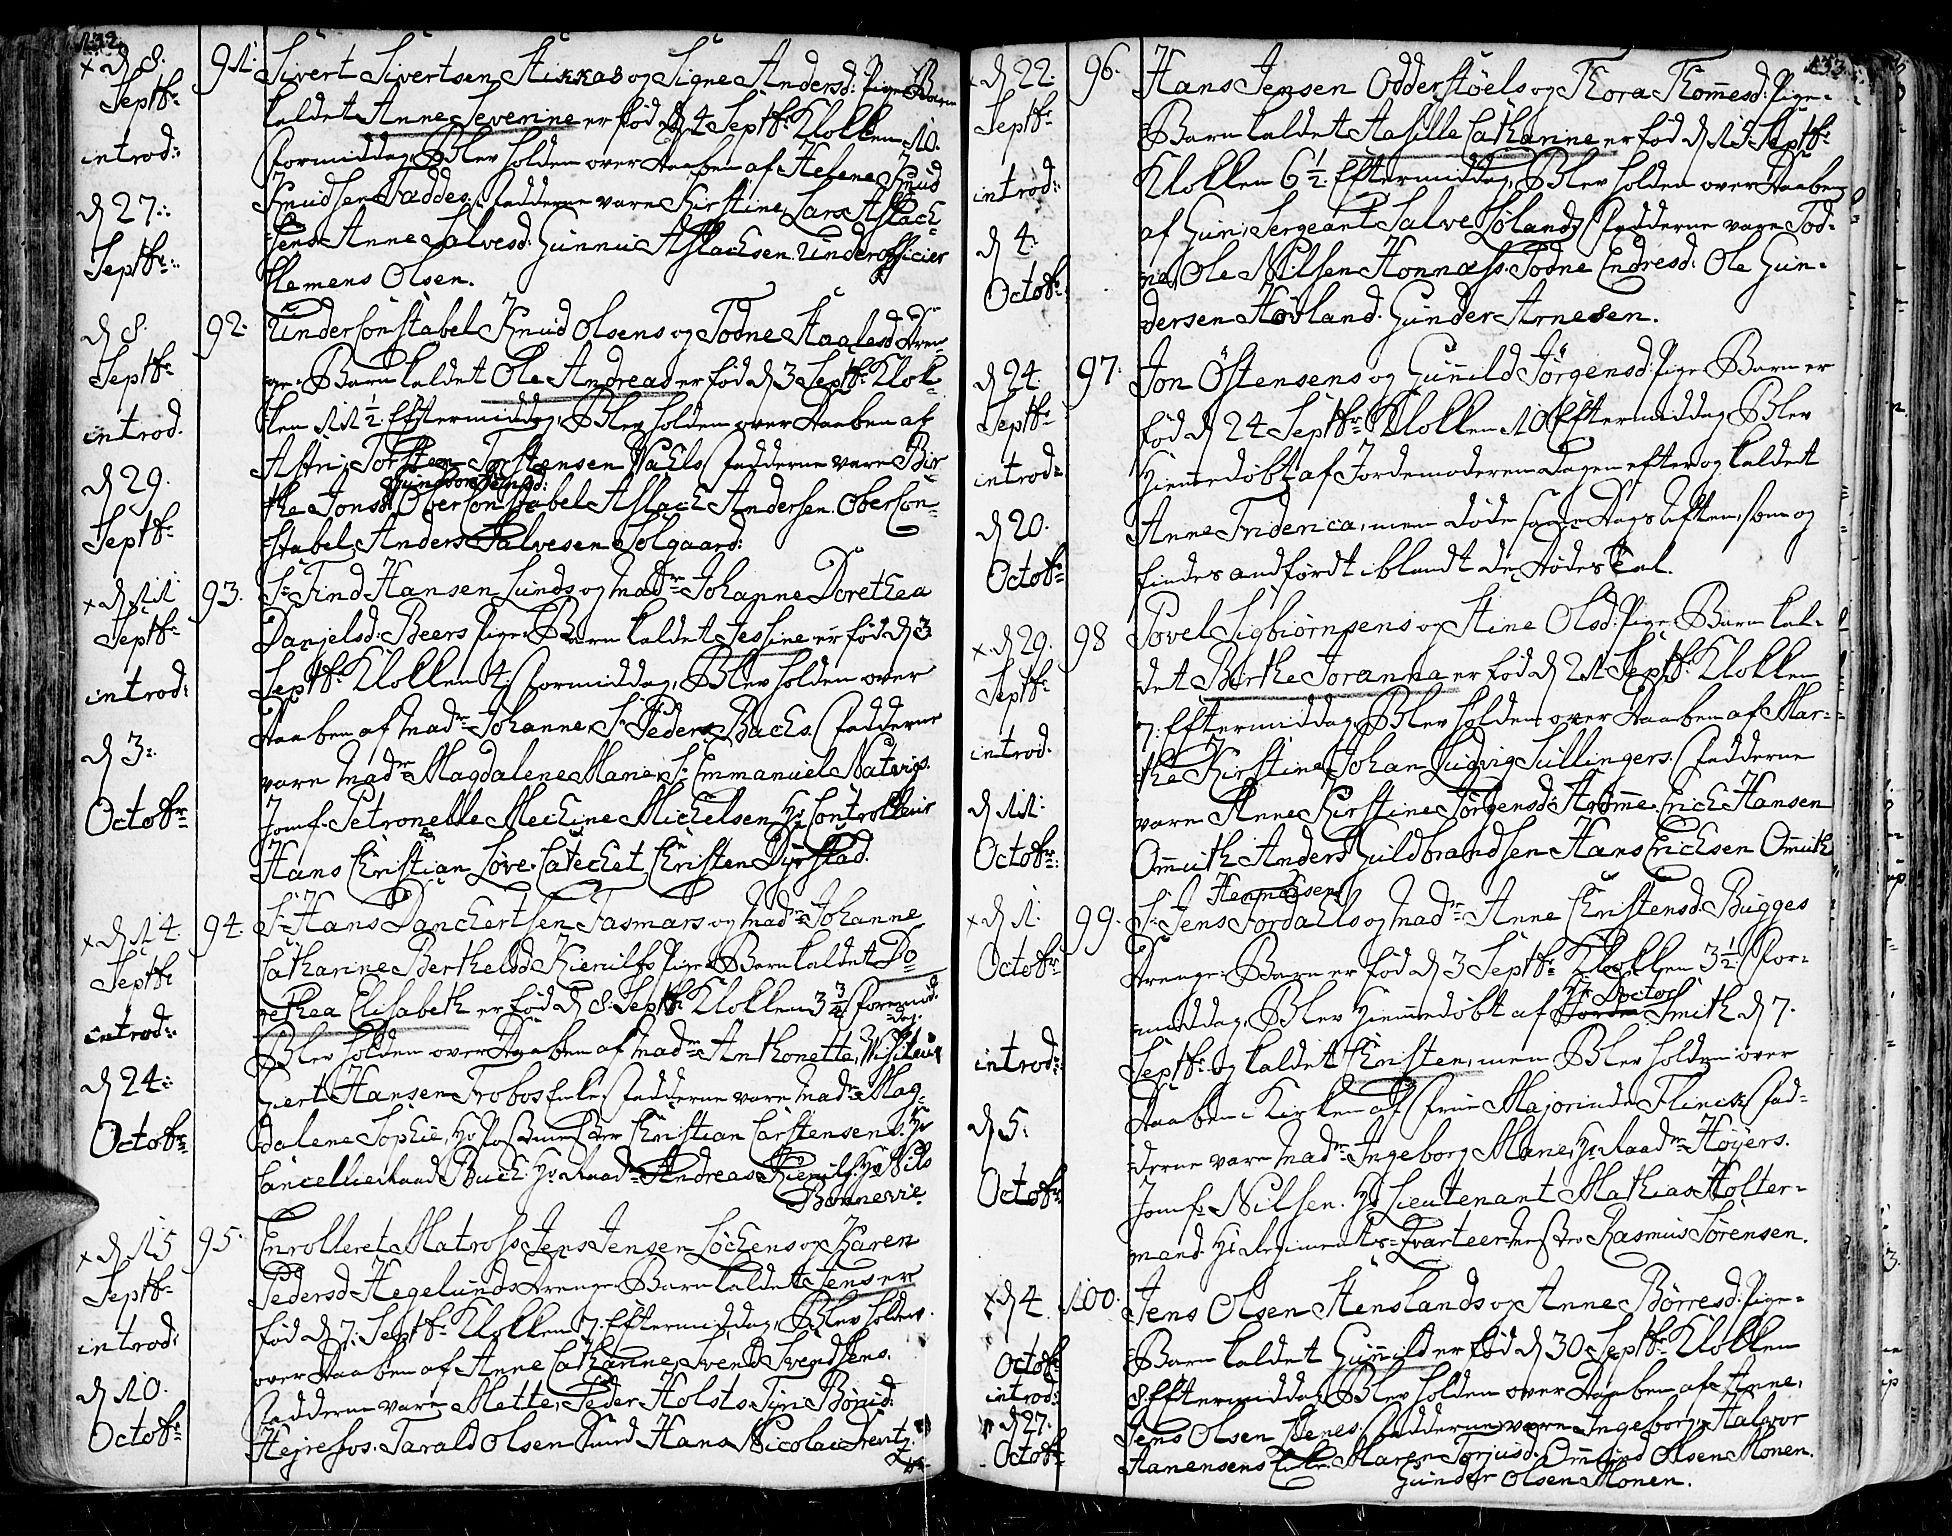 132.
x d 8. Septbr. introd: d 27. Septbr:
91. Sivert Sivertsen Stikkas og Signe Andersd: Pige Barn
kaldet Anne Severine er fød d 4 Septbr: Klokken 10.
Formiddag, Blev holden over Daaben af Helene Knud
Knudsen Faddes: Fadderne vare Kirstine, Lars Aslach
sens Anne Salvesd: Gunnu Aslachsen. Underofficier
Klemens Olsen.
d 8. Septbr introd. d 29. Septbr
92. Underconstabel Knud Olsens og Todne Haalesd Dren-
ge-Barn kaldet Ole Andreas er fød d 3 Septbr: Klok-
ken 11 1/2. Eftermiddag, Blev holden over Daaben af
Astri, Torsten Torstensen Fadderne vare Bir-
the Jonsd: Oberconstabel Aslach Andersen. Obercon-
stabel Anders Salvesen Solgaard:
x d 11 Septbr introd: d 3. Octobr
93. Sr. Find Hansen Lunds og Madme Johanne Dorethea
Danjelsd: Beers Pige-Barn kaldet Jessine er fød d 3
Septbr. Klokken 4. Formiddag, Blev holden over
Daaben af Madme Johanne, Sr. Peder Bachs. Fadderne
vare Madme Magdalene Marie, Sr. Emmanuel Natvigs.
Jomf. Petronelle Mechine Michelsen, Hr. Controlleur
Hans Christian Love. Catechet Christen Dyrstad.
x d 14. Septbr introd: d 24: Octobr
94. Sr. Hans Danchertsen Fasmars og Madme Johanne
Catharine Bertheldsd Kienilfs Pige-Barn kaldet Do-
rethea Elisabeth er fød d 8. Septbr. Klokken 3 3/4 Formid-
dag.
Blev holden over Daaben af Madme Anthonette,
Giert Hansen Frobos Enke, Fadderne vare Madme Mag-
dalene Sophie, Hr. Postmester Christian Carstensens. Hr.
Cancellieraad Buch. Hr. Raadm. Andreas Kienilf, Hr. Nils
Bonnevie.
x d 15 Septbr introd: d 10. Octobr
95. Enrolleret Matross Jens Jensen Lochens og Karen
Pedersd Hegelunds Drenge-Barn kaldet Jens er
fød d 7. Septbr Klokken 7. Eftermiddag, Blev holden
over Daaben af Anne Catharine, Svend Svendsens.
Fadderne vare Mette, Peder Holsts.
Hejresfos. Tarald Olsen Hans Nicolai
133.
x d 22. Septbr introd: d 4. Octobr.
96. Hans Jensen Odderstøels og Thora Thomesd: Pige-
Barn kaldet Aasille Catharine er fød d 15 Septbr
Klokken 6 1/2. Eftermiddag, Blev holden over Daaben
af Guni, Sergeant Salve Løland, Fadderne vare Tod-
ne, Ole Nilsen Honnæs. Todne Endresd: Ole Gun-
dersen Høvland. Gunder Arnesen.
d 24. Septbr introd: d 20. Octobr
97. Jon Østensens og Gunnild Jørgensd: Pige Barn er
fød d 24 Septbr Klokken 10 Eftermiddag Blev
Hiemmedøbt af Jordemoderen Dagen efter og kaldet
Anne Friderica, men døde samme Dags Aften, som og
findes andført iblandt de Dødes Tal.
x d 29. Septbr introd. d 11. Octobr:
98 Povel Sigbiørnsens og Stine Olsd: Pige-Barn kal-
det Birthe Joranna er fød d 21 Septbr. Klokken
7. Eftermiddag, Blev holden over Daaben af Mar-
the Kirstine, Johan Ludvig Sullingers. Fadderne
vare Anne Kirstine Jørgensd: Erich Hansen
Omuth Anders Guldbrandsen Hans Erichsen Omuth
x d 1. Octobr introd: d 5. Octobr
99. Sr. Jens Fordahls og Madme Anne Christensd. Bugges
Drenge-Barn er fød d 3 Septbr. Klokken 3 1/2 For-
middag, Blev Hiemmedøbt af Hr. Doctor Smith d 7.
Septbr. og kaldet Christen, men Blev holden over
Daaben i Kirken af Frue Majorinde Flinck, Fad-
derne vare Madme Ingeborg Marie, Hr. Raadm. Høyers.
Jomf. Nilsen. Hr. Lieutenant Mathias Holter-
mand. Hr. Regiments-Qvarteermester Rasmus Sørensen.
x d 4 Octobr introd: d 27. Octobr
100. Jens Olsen Stenslands og Anne Børresd: Pige-
Barn kaldet Gunild er fød d 30 Septbr. Klokken
8. Eftermiddag, Blev holden over Daaben af Anne,
Jens Olsen Fadderne vare Ingeborg, Halvor
Hanensens Enke. Maren Torjusd: Omund Olsen Monen.
Gunder Olsen Monen.